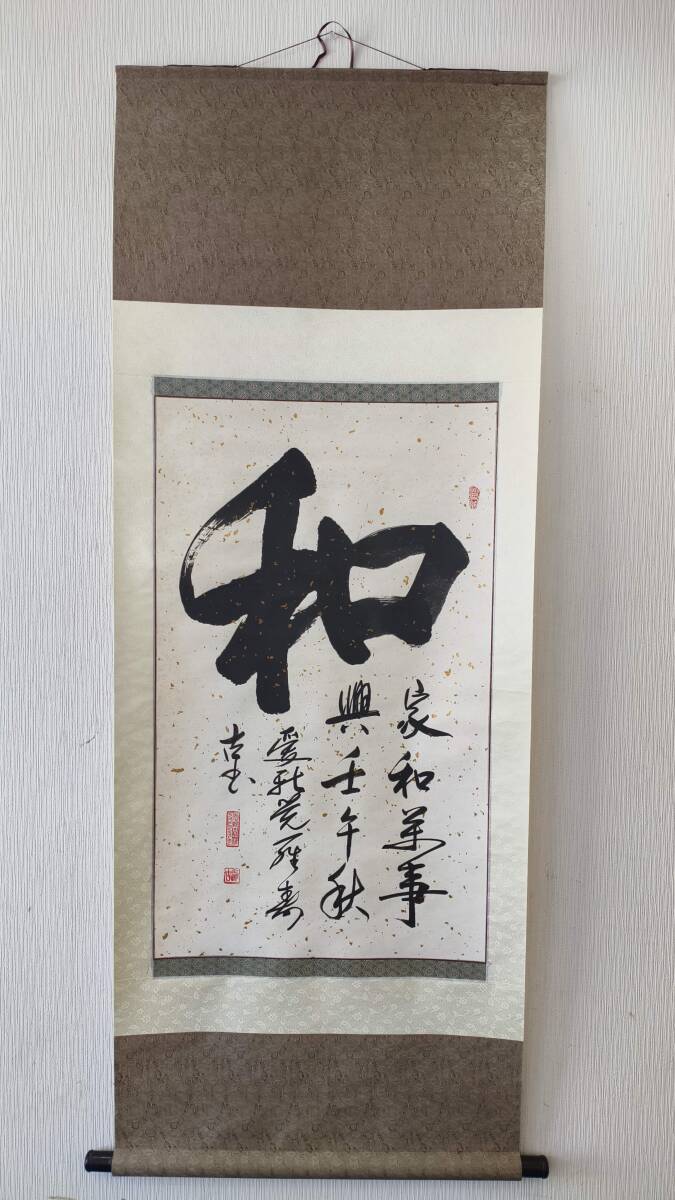 和
家和萬事
興壬午秋
愛新覚羅壽
古書